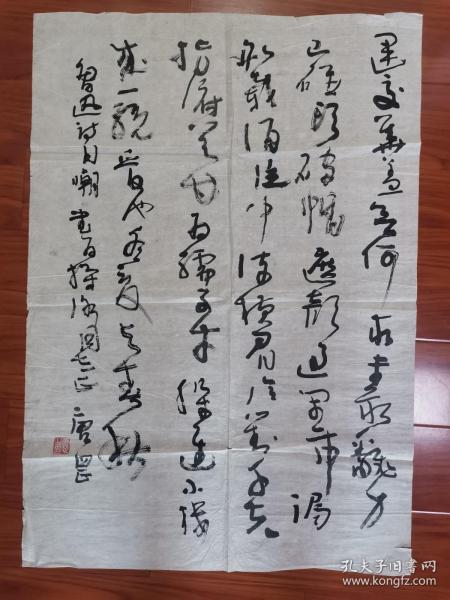 運交華蓋欲何求未敢翻身
已碰頭破帽遮顏過鬧市漏
船載酒泛中流橫眉冷對千夫
指俯首甘為孺子牛躲進小樓
成一統管他冬夏與春秋
魯迅詩自嘲 正 唐
孔夫子旧书网
www.kongfz.com